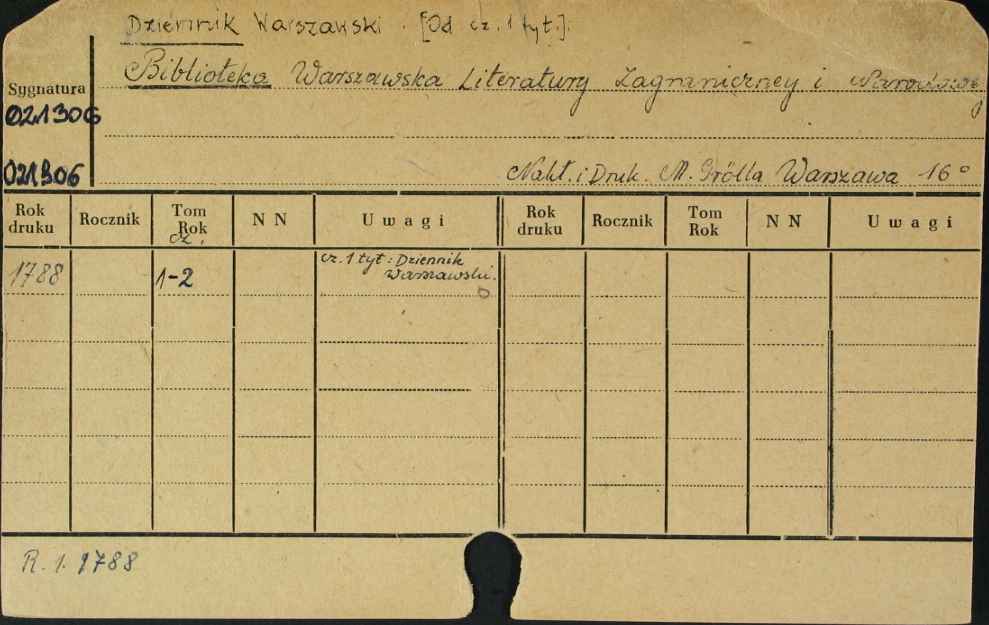 Dziennik Warszawski. [Od cz. 1 tyt.].
Biblioteka Warszawska Literatury Zagraniczney i Narodowey
Sygnatura
021306
021306
Nakł. i Druk. M. Grölla Warszawa 16°
Rok druku Rocznik Tom Rok cz. N N Uwagi Rok druku Rocznik Tom Rok N N Uwagi
1788 1-2 cz. 1 tyt: Dziennik
Warszawski.
R. 1. 1788